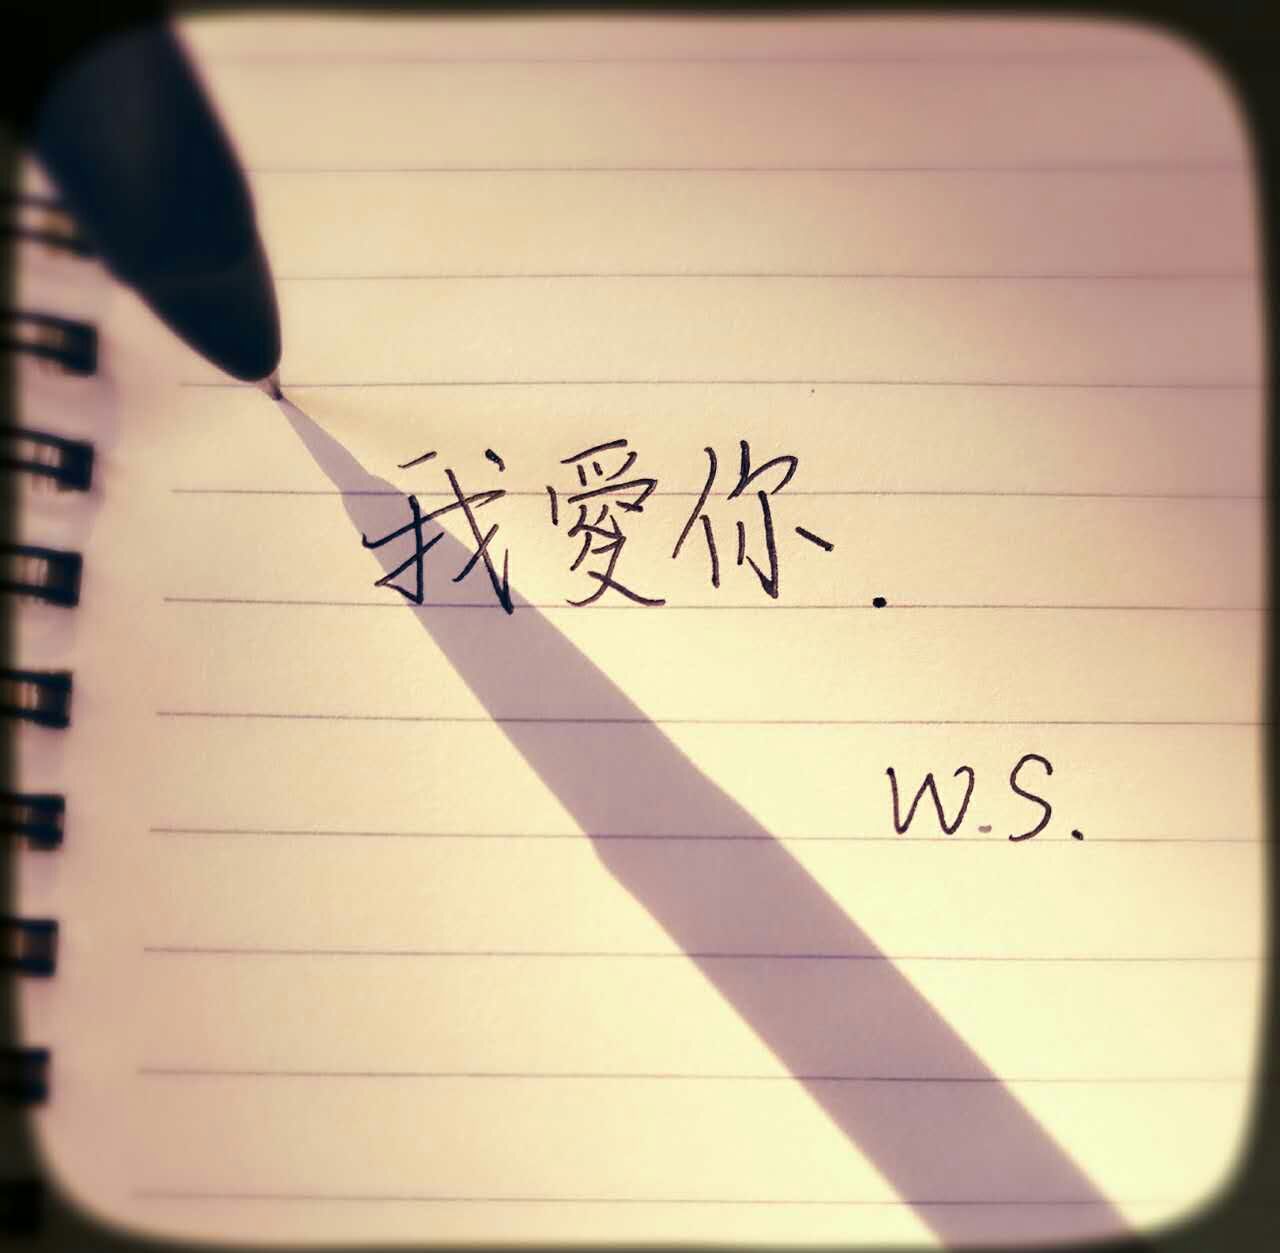 我愛你.
W.S.